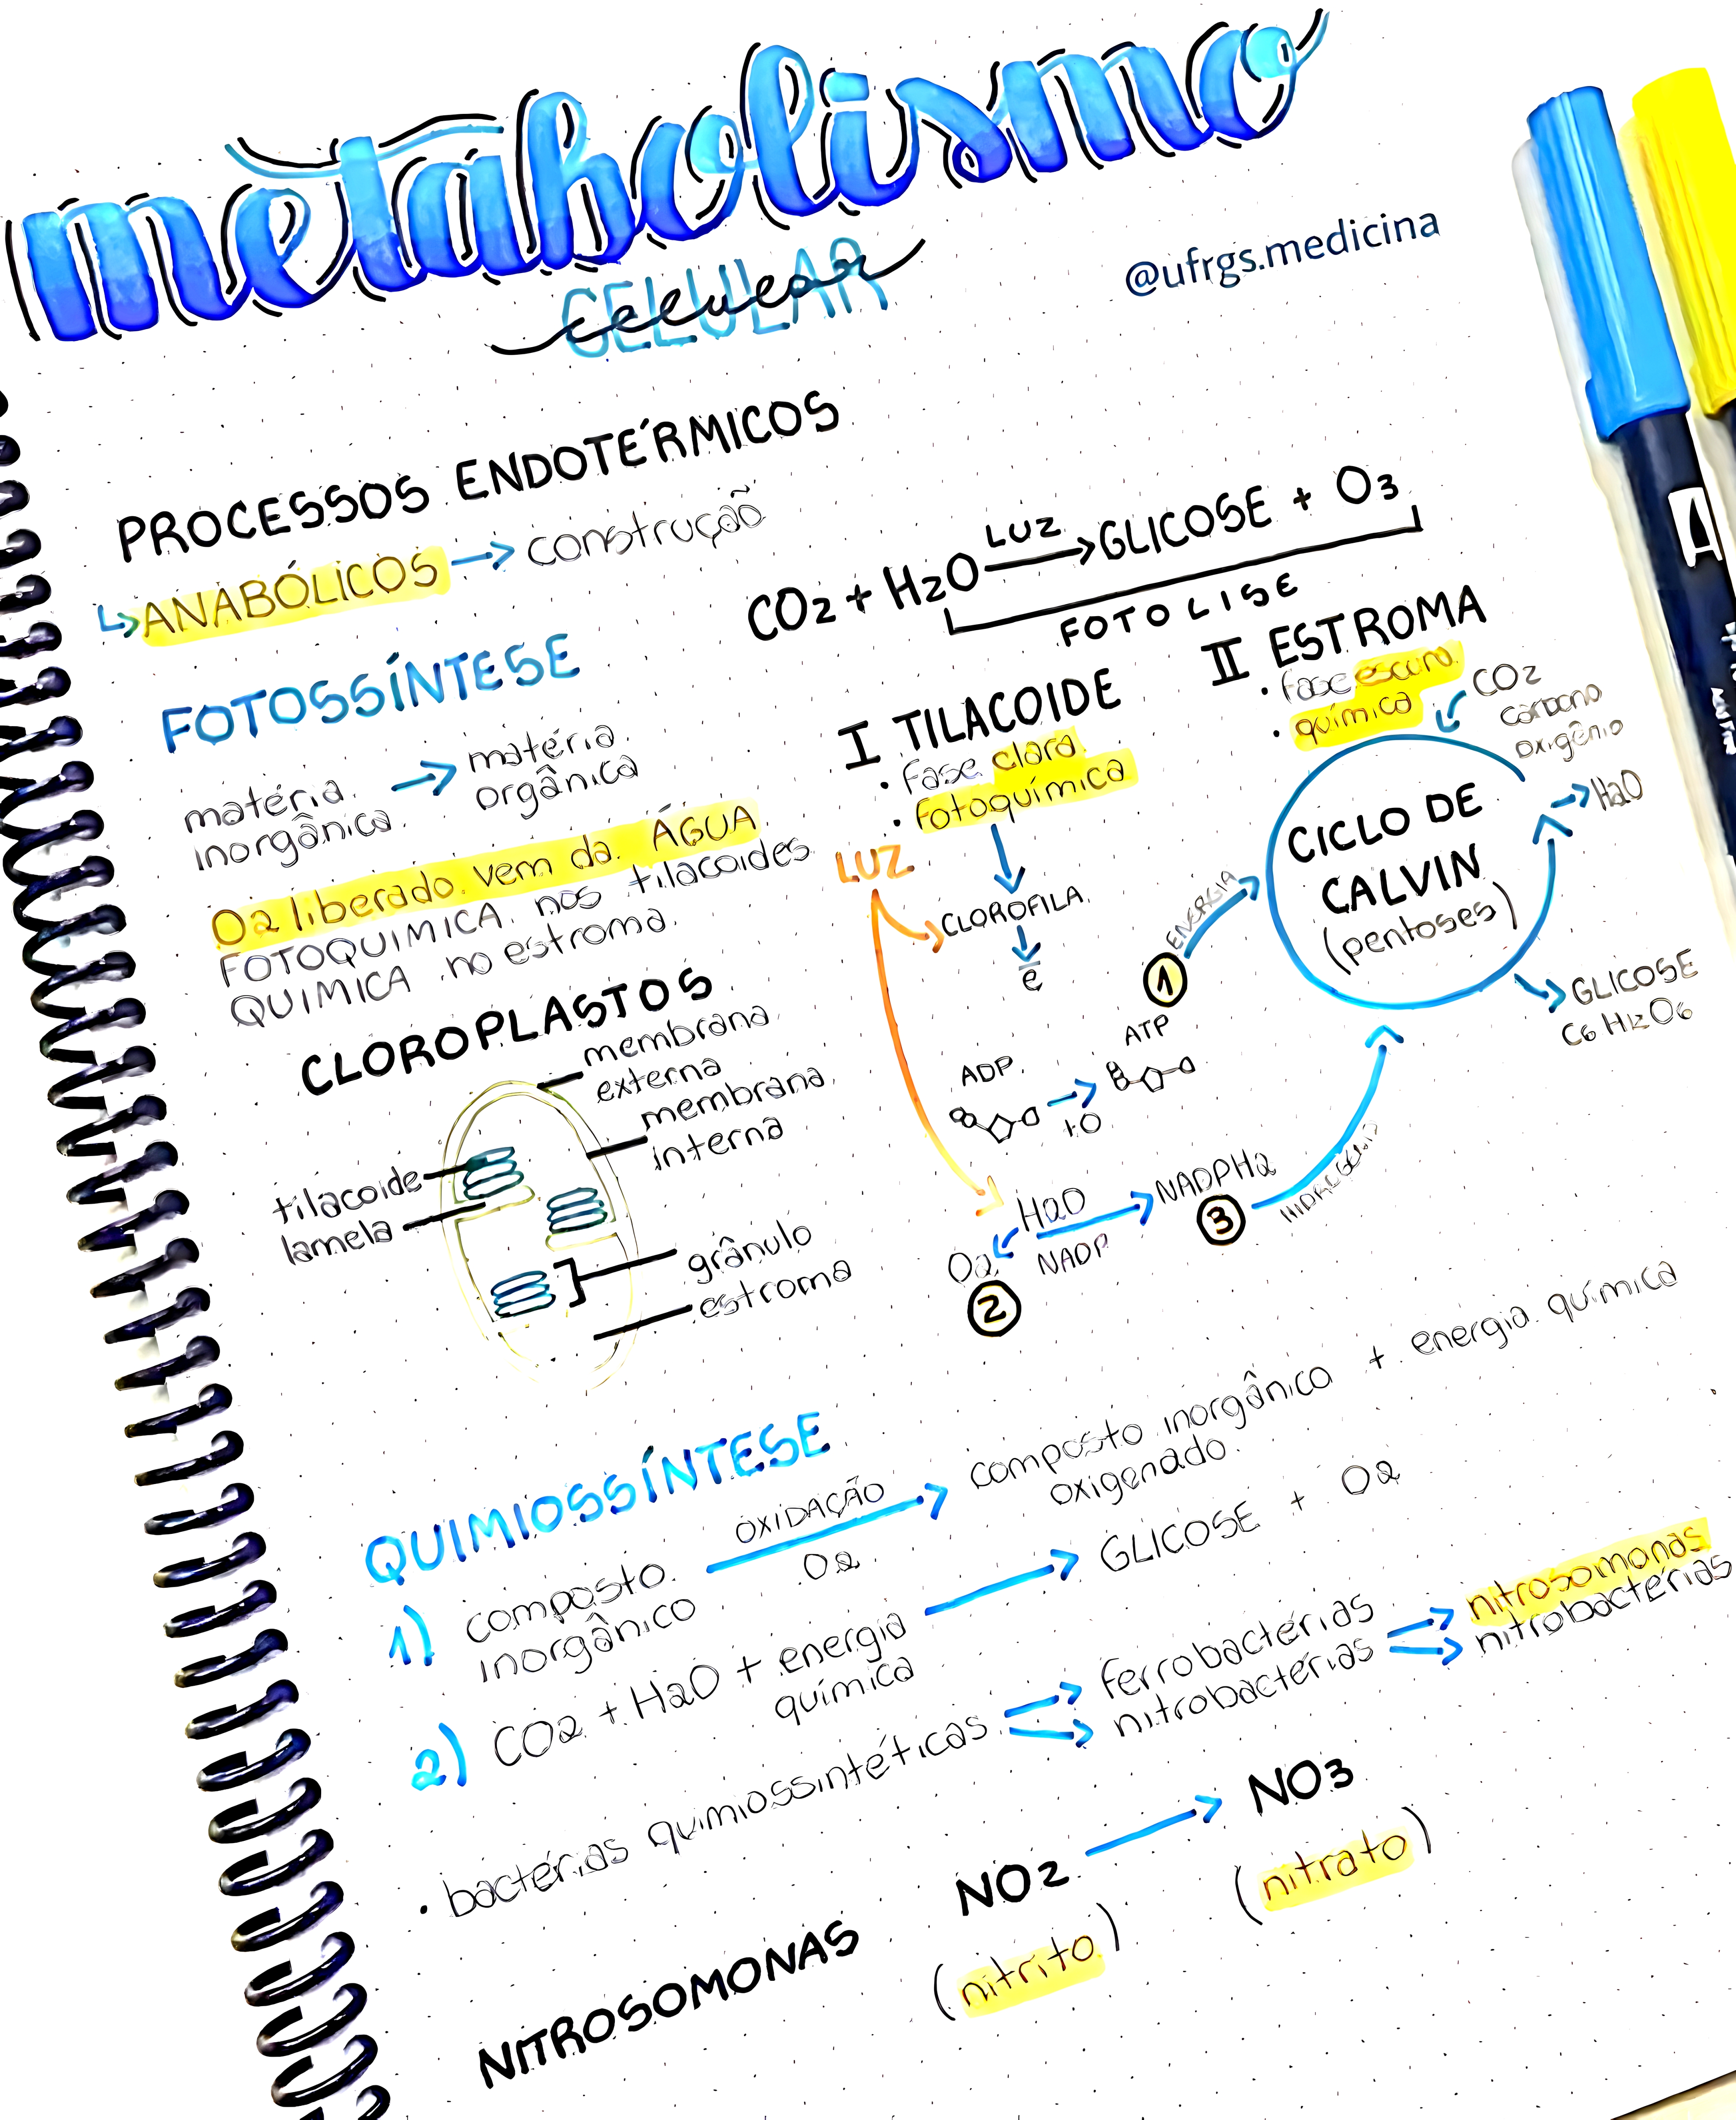 metabolismo
CELULAR
celular
@ufrgs.medicina
PROCESSOS ENDOTÉRMICOS
↳ ANABÓLICOS → construção
CO2 + H2O LUZ → GLICOSE + O3
FOTOLISE
FOTOSSÍNTESE
matéria inorgânica → matéria orgânica
O2 liberado vem da ÁGUA
FOTOQUIMICA nos tilacoides
QUIMICA no estroma.
I TILACOIDE
• Fase clara
• Fotoquímica
LUZ
CLOROFILA
e
ADP
+O
ATP
1
ENERGIA
H2O
O2
2
NADP
NADPH2
3
HIDROGÊNIO
II ESTROMA
• Fase escura
• química
CO2
carbono
oxigênio
CICLO DE
CALVIN
(pentoses)
H2O
GLICOSE
C6 H12O6
CLOROPLASTOS
membrana
externa
membrana
interna
tilacoide
lamela
grânulo
estroma
QUIMIOSSÍNTESE
1) composto inorgânico OXIDAÇÃO O2 → composto inorgânico oxigenado + energia química
2) CO2 + H2O + energia química → GLICOSE + O2
• bactérias quimiossintéticas
ferrobactérias
nitrobactérias
nitrosomonas
nitrobactérias
NITROSOMONAS NO2 → NO3
(nitrito) (nitrato)